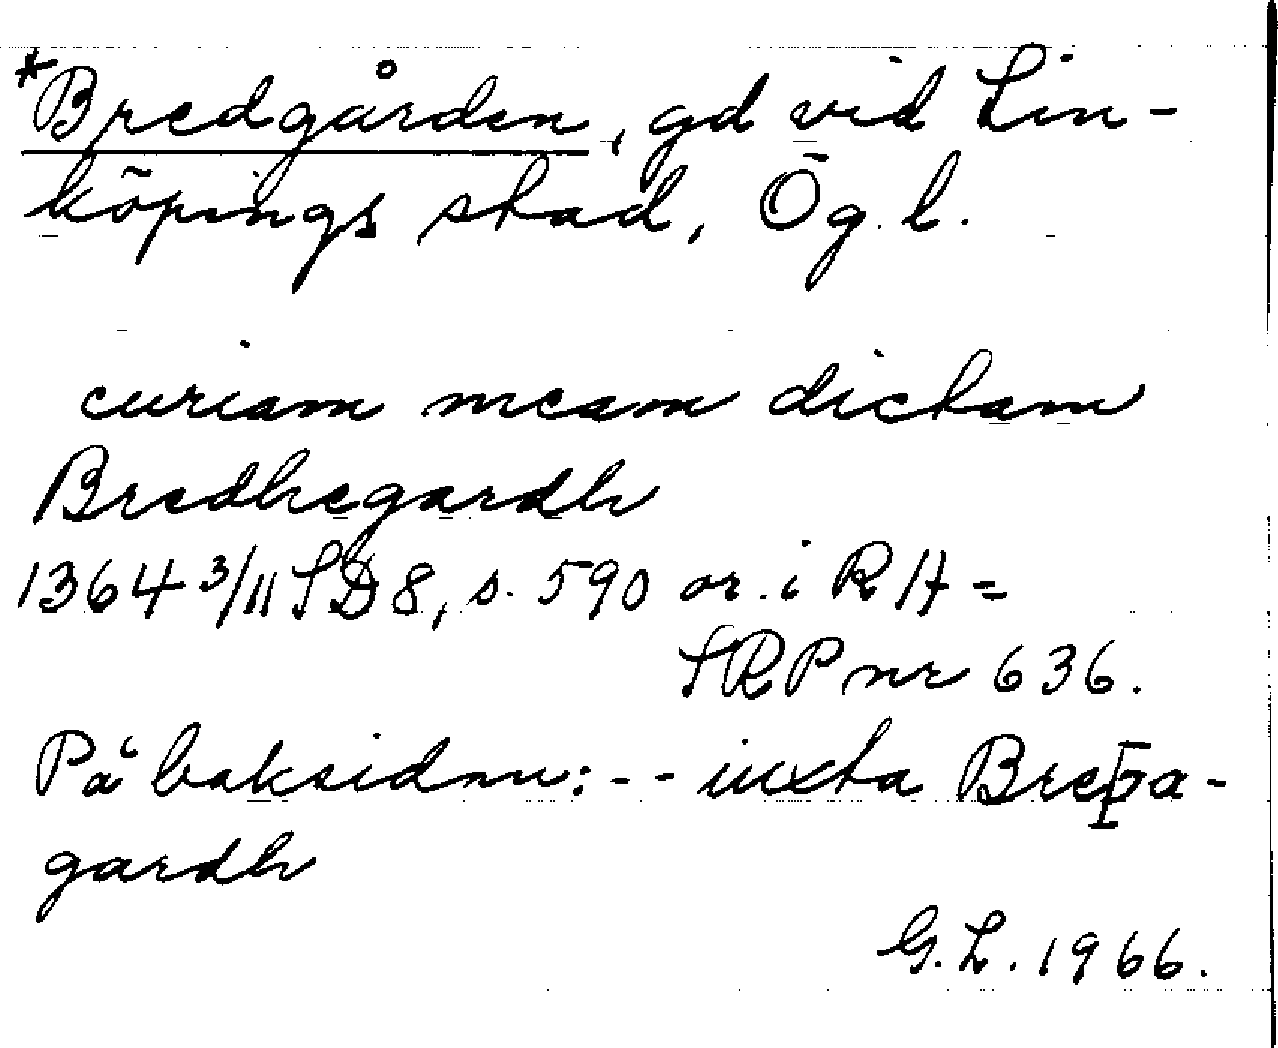 *Bredgården, gd vid Lin-
köpings stad, Ög. l.
curiam meam dictam
Bredhegardh
1364 3/11 SD 8, s. 590 or. i RA =
SRP nr 636.
På baksidan: -- iuxta Breþa-
gardh
G. L. 1966.